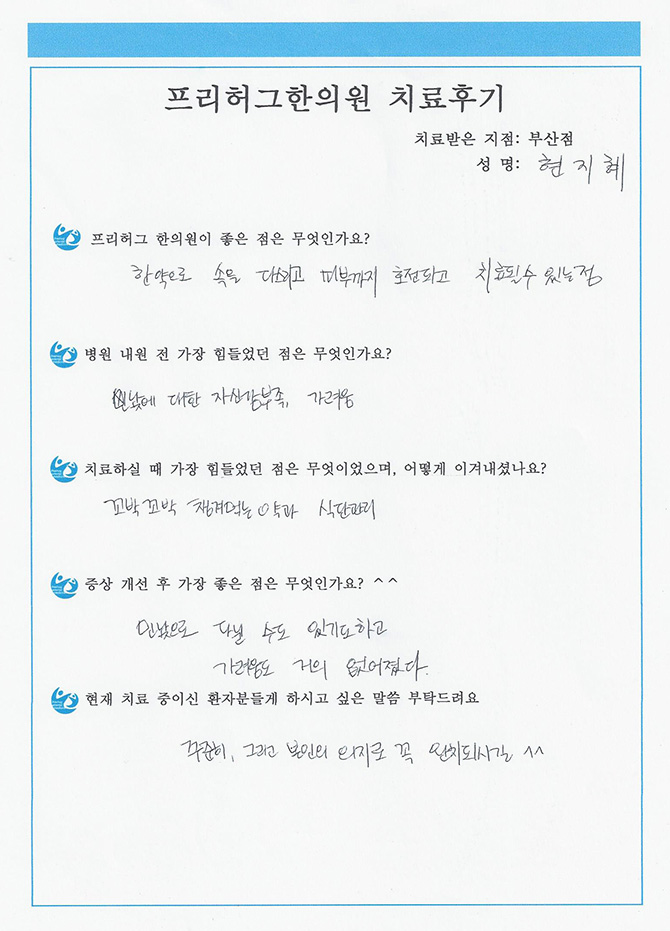 프리허그한의원 치료후기
치료받은 지점: 부산점
성 명: 현지혜
프리허그 한의원이 좋은 점은 무엇인가요?
한약으로 속을 다스리고 피부까지 호전되고 치료될수 있는점
병원 내원 전 가장 힘들었던 점은 무엇인가요?
민낯에 대한 자신감부족, 가려움
치료하실 때 가장 힘들었던 점은 무엇이었으며, 어떻게 이겨내셨나요?
꼬박꼬박 챙겨먹는 약과 식단관리
증상 개선 후 가장 좋은 점은 무엇인가요? ^^
민낯으로 다닐 수도 있기도하고
가려움도 거의 없어졌다.
현재 치료 중이신 환자분들게 하시고 싶은 말씀 부탁드려요
꾸준히, 그리고 본인의 의지로 꼭 완치되시길 ^^